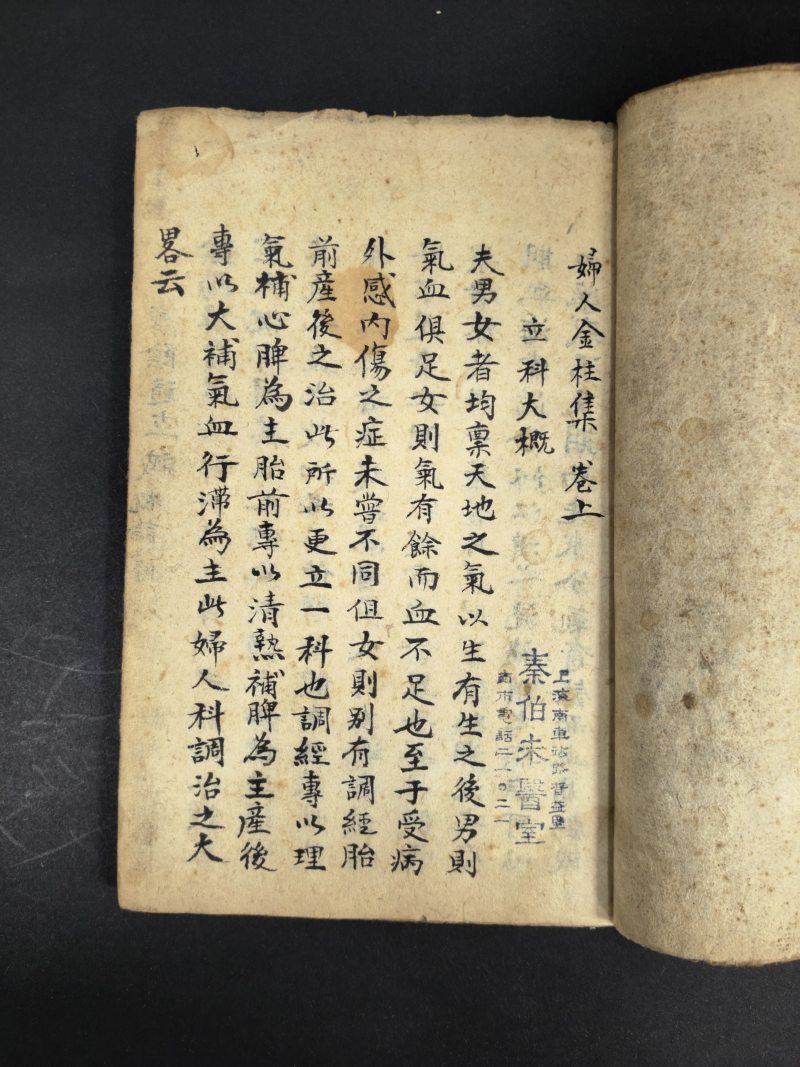 婦人金柱集 卷上
立科大概
夫男女者均禀天地之氣以生有生之後男則
氣血俱足女則氣有餘而血不足也至于受病
外感内傷之症未嘗不同但女則别有調經胎
前産後之治此所以更立一科也調經專以理
氣補心脾為主胎前專以清熱補脾為主產後
專以大補氣血行滯為主此婦人科調治之大
畧云
上海南車站路普益里
秦伯未醫室
南市電話二一〇二一